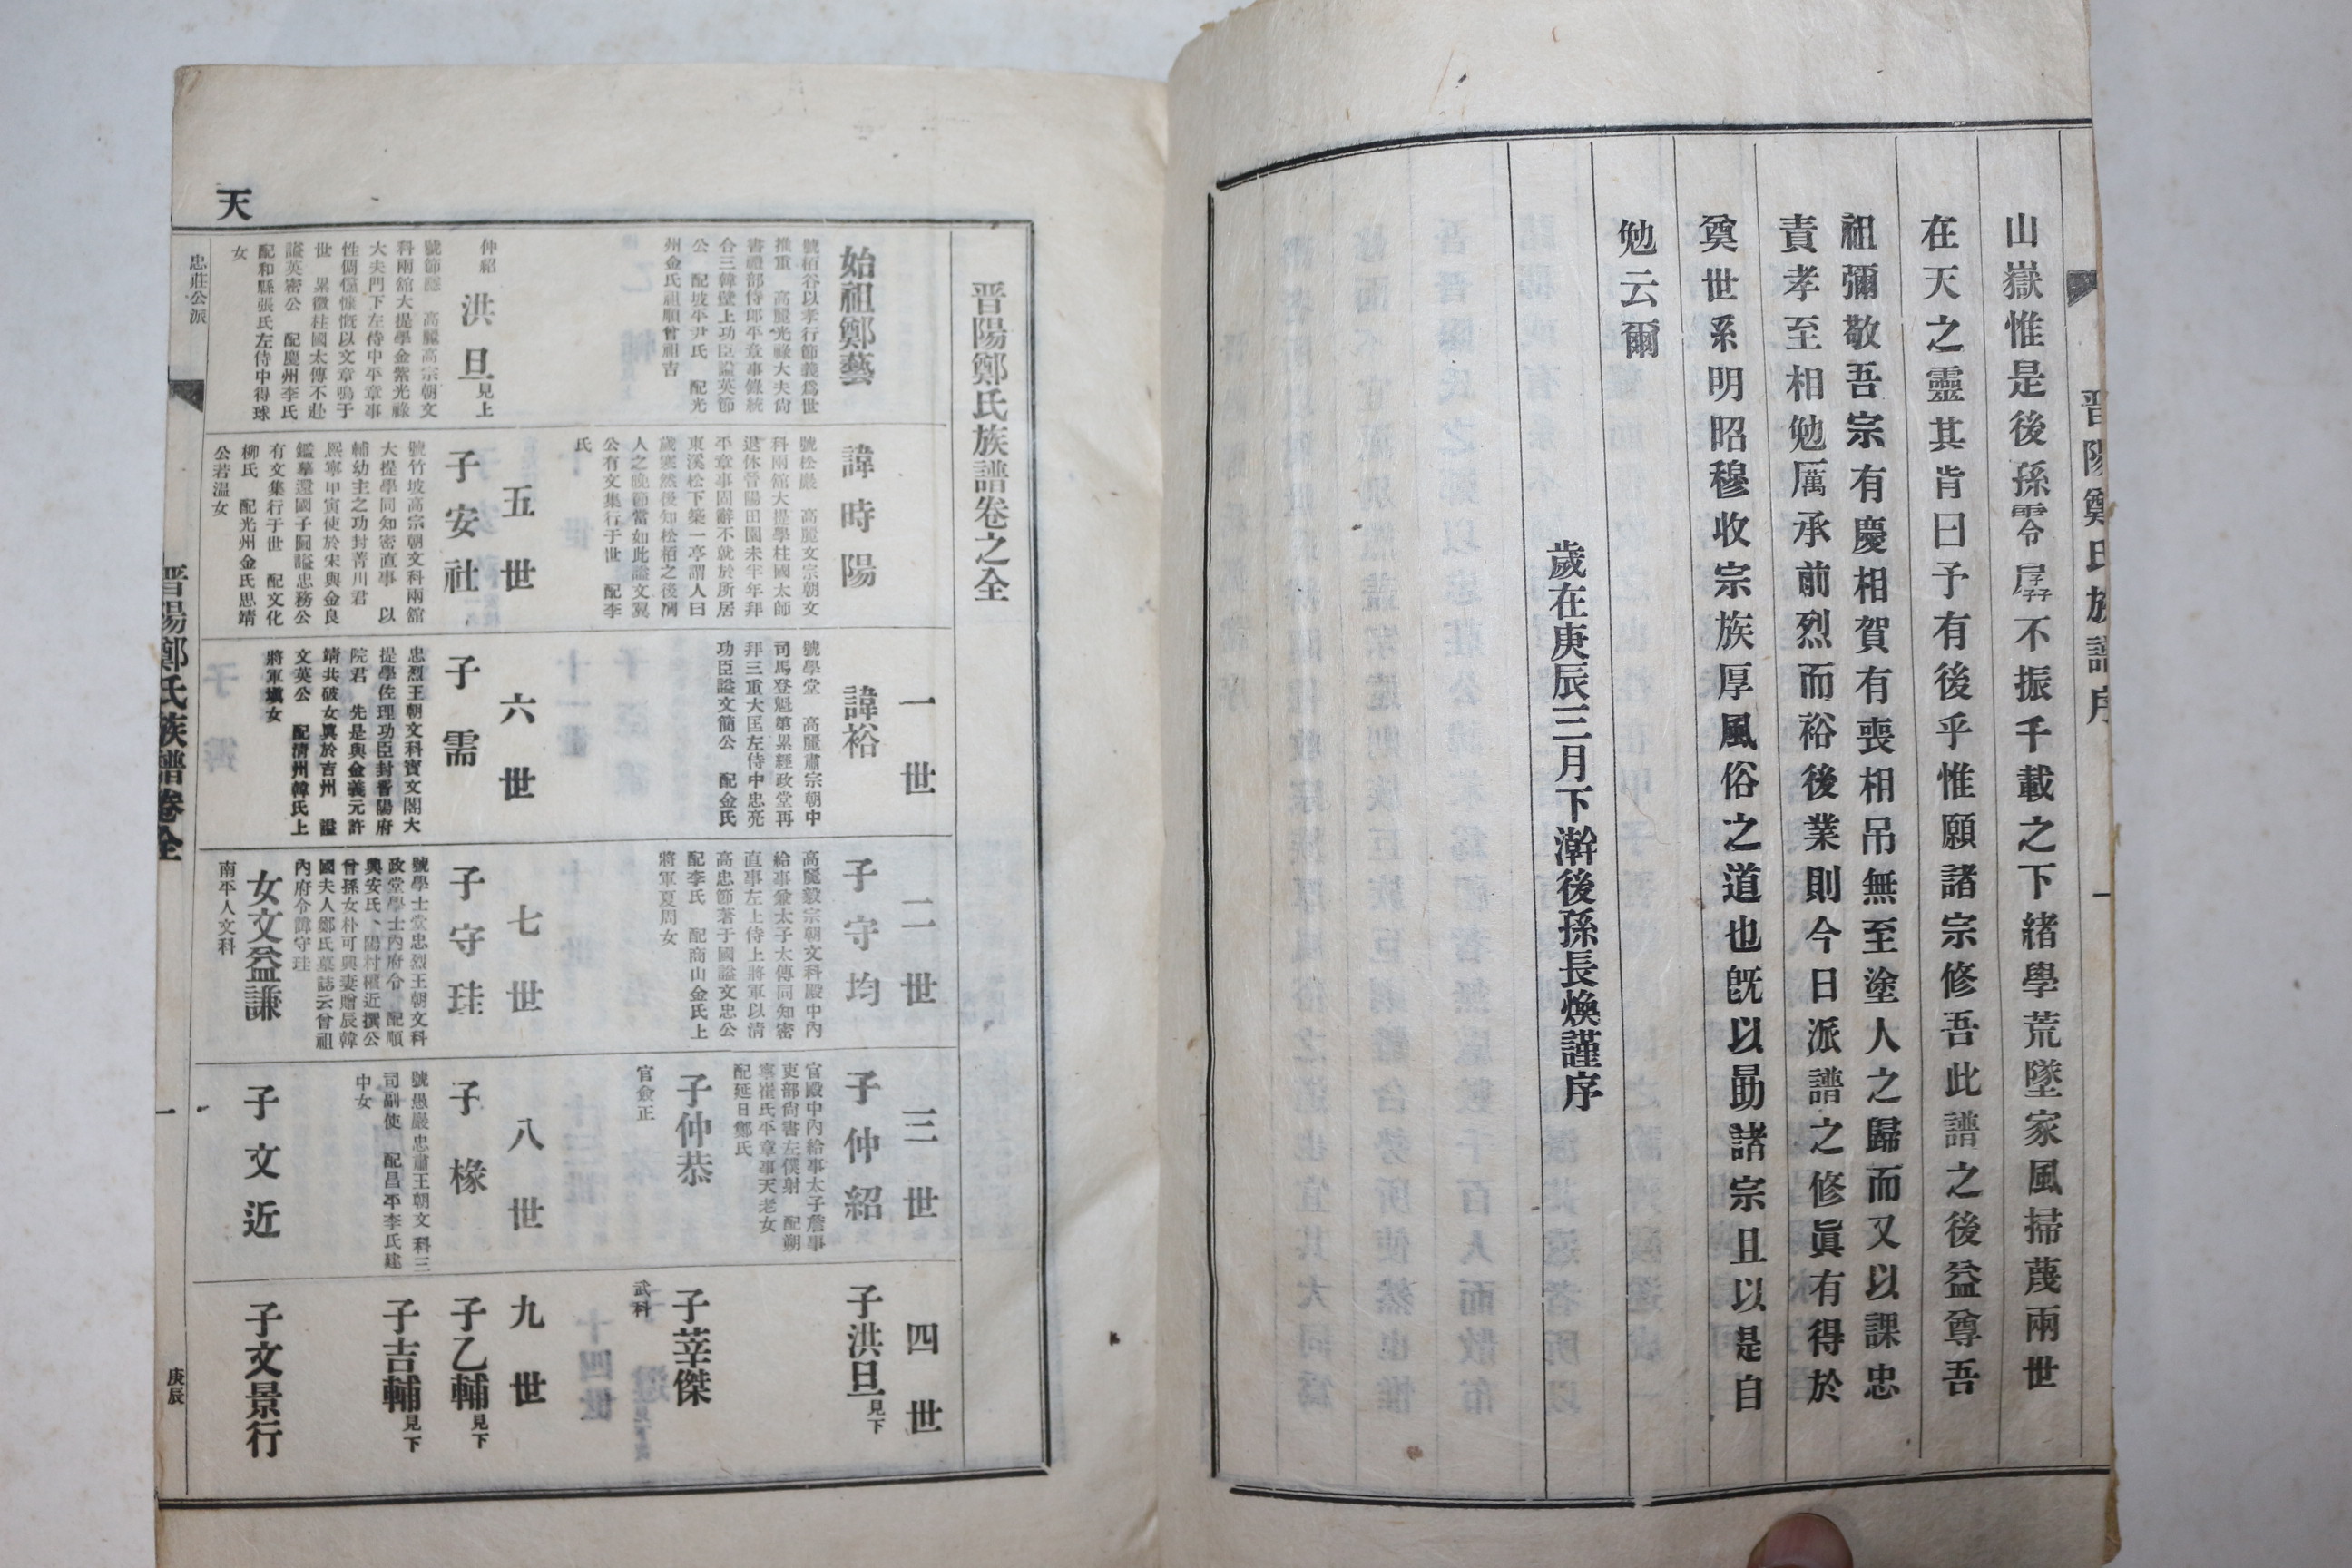 晋陽鄭氏族譜序
一
山嶽惟是後孫零孱不振千載之下緖學荒墜家風掃蔑兩世
在天之靈其肯曰予有後乎惟願諸宗修吾此譜之後益尊吾
祖彌敬吾宗有慶相賀有喪相吊無至塗人之歸而又以課忠
責孝至相勉厲承前烈而裕後業則今日派譜之修眞有得於
奠世系明昭穆收宗族厚風俗之道也旣以勗諸宗且以是自
勉云爾
歲在庚辰三月下澣後孫長煥謹序
晋陽鄭氏族譜卷之全
一世
二世
三世
四世
始祖鄭藝
號栢谷以孝行節義爲世
推重 高麗光祿大夫尙
書禮部侍郎平章事錄統
合三韓壁上功臣謚英節
公 配坡平尹氏 配光
州金氏祖順曾祖吉
諱時陽
號松嚴 高麗文宗朝文
科兩館大提學柱國太師
退休晉陽田園未半年拜
平章事固辭不就於所居
東溪松下築一亭謂人曰
歲寒然後知松栢之後凋
人之晚節當如此謚文翼
公有文集行于世 配李
氏
諱裕
號學堂 高麗肅宗朝中
司馬登魁第累經政堂再
拜三重大匡左侍中忠亮
功臣謚文簡公 配金氏
子守均
高麗毅宗朝文科殿中內
給事兼太子太傅同知密
直事左上侍上將軍以淸
高忠節著于國謚文忠公
配李氏 配商山金氏上
將軍夏周女
子仲紹
官殿中內給事太子詹事
吏部尙書左僕射 配朔
寧崔氏平章事天老女
配延日鄭氏
子仲恭
官僉正
子洪旦見下
子莘傑
武科
五世
六世
七世
八世
九世
仲紹
洪旦見上
號節隱 高麗高宗朝文
科兩館大提學金紫光祿
大夫門下左侍中平章事
性倜儻慷慨以文章鳴于
世 累徵柱國太傅不赴
謚英密公 配慶州李氏
配和縣張氏左侍中得球
女
子安社
號竹坡高宗朝文科兩館
大提學同知密直事 以
輔幼主之功封菁川君
熙寧甲寅使於宋與金良
鑑摹還國子圖謚忠務公
有文集行于世 配文化
柳氏 配光州金氏思靖
公若温女
子需
忠烈王朝文科寶文閣大
提學佐理功臣封晋陽府
院君 先是與金義元許
靖共破女眞於吉州 謚
文英公 配淸州韓氏上
將軍壎女
子守珪
號學士堂忠烈王朝文科
政堂學士內府令 配順
興安氏、陽村權近撰公
曾孫女朴可興妻贈辰韓
國夫人鄭氏墓誌云曾祖
內府令諱守珪
女文益謙
南平人文科
子椽
號愚嚴忠肅王朝文科三
司副使 配昌平李氏建
中女
子文近
子乙輔見下
子吉輔見下
子文景行
天
忠莊公派
晋陽鄭氏族譜卷全
一
庚辰